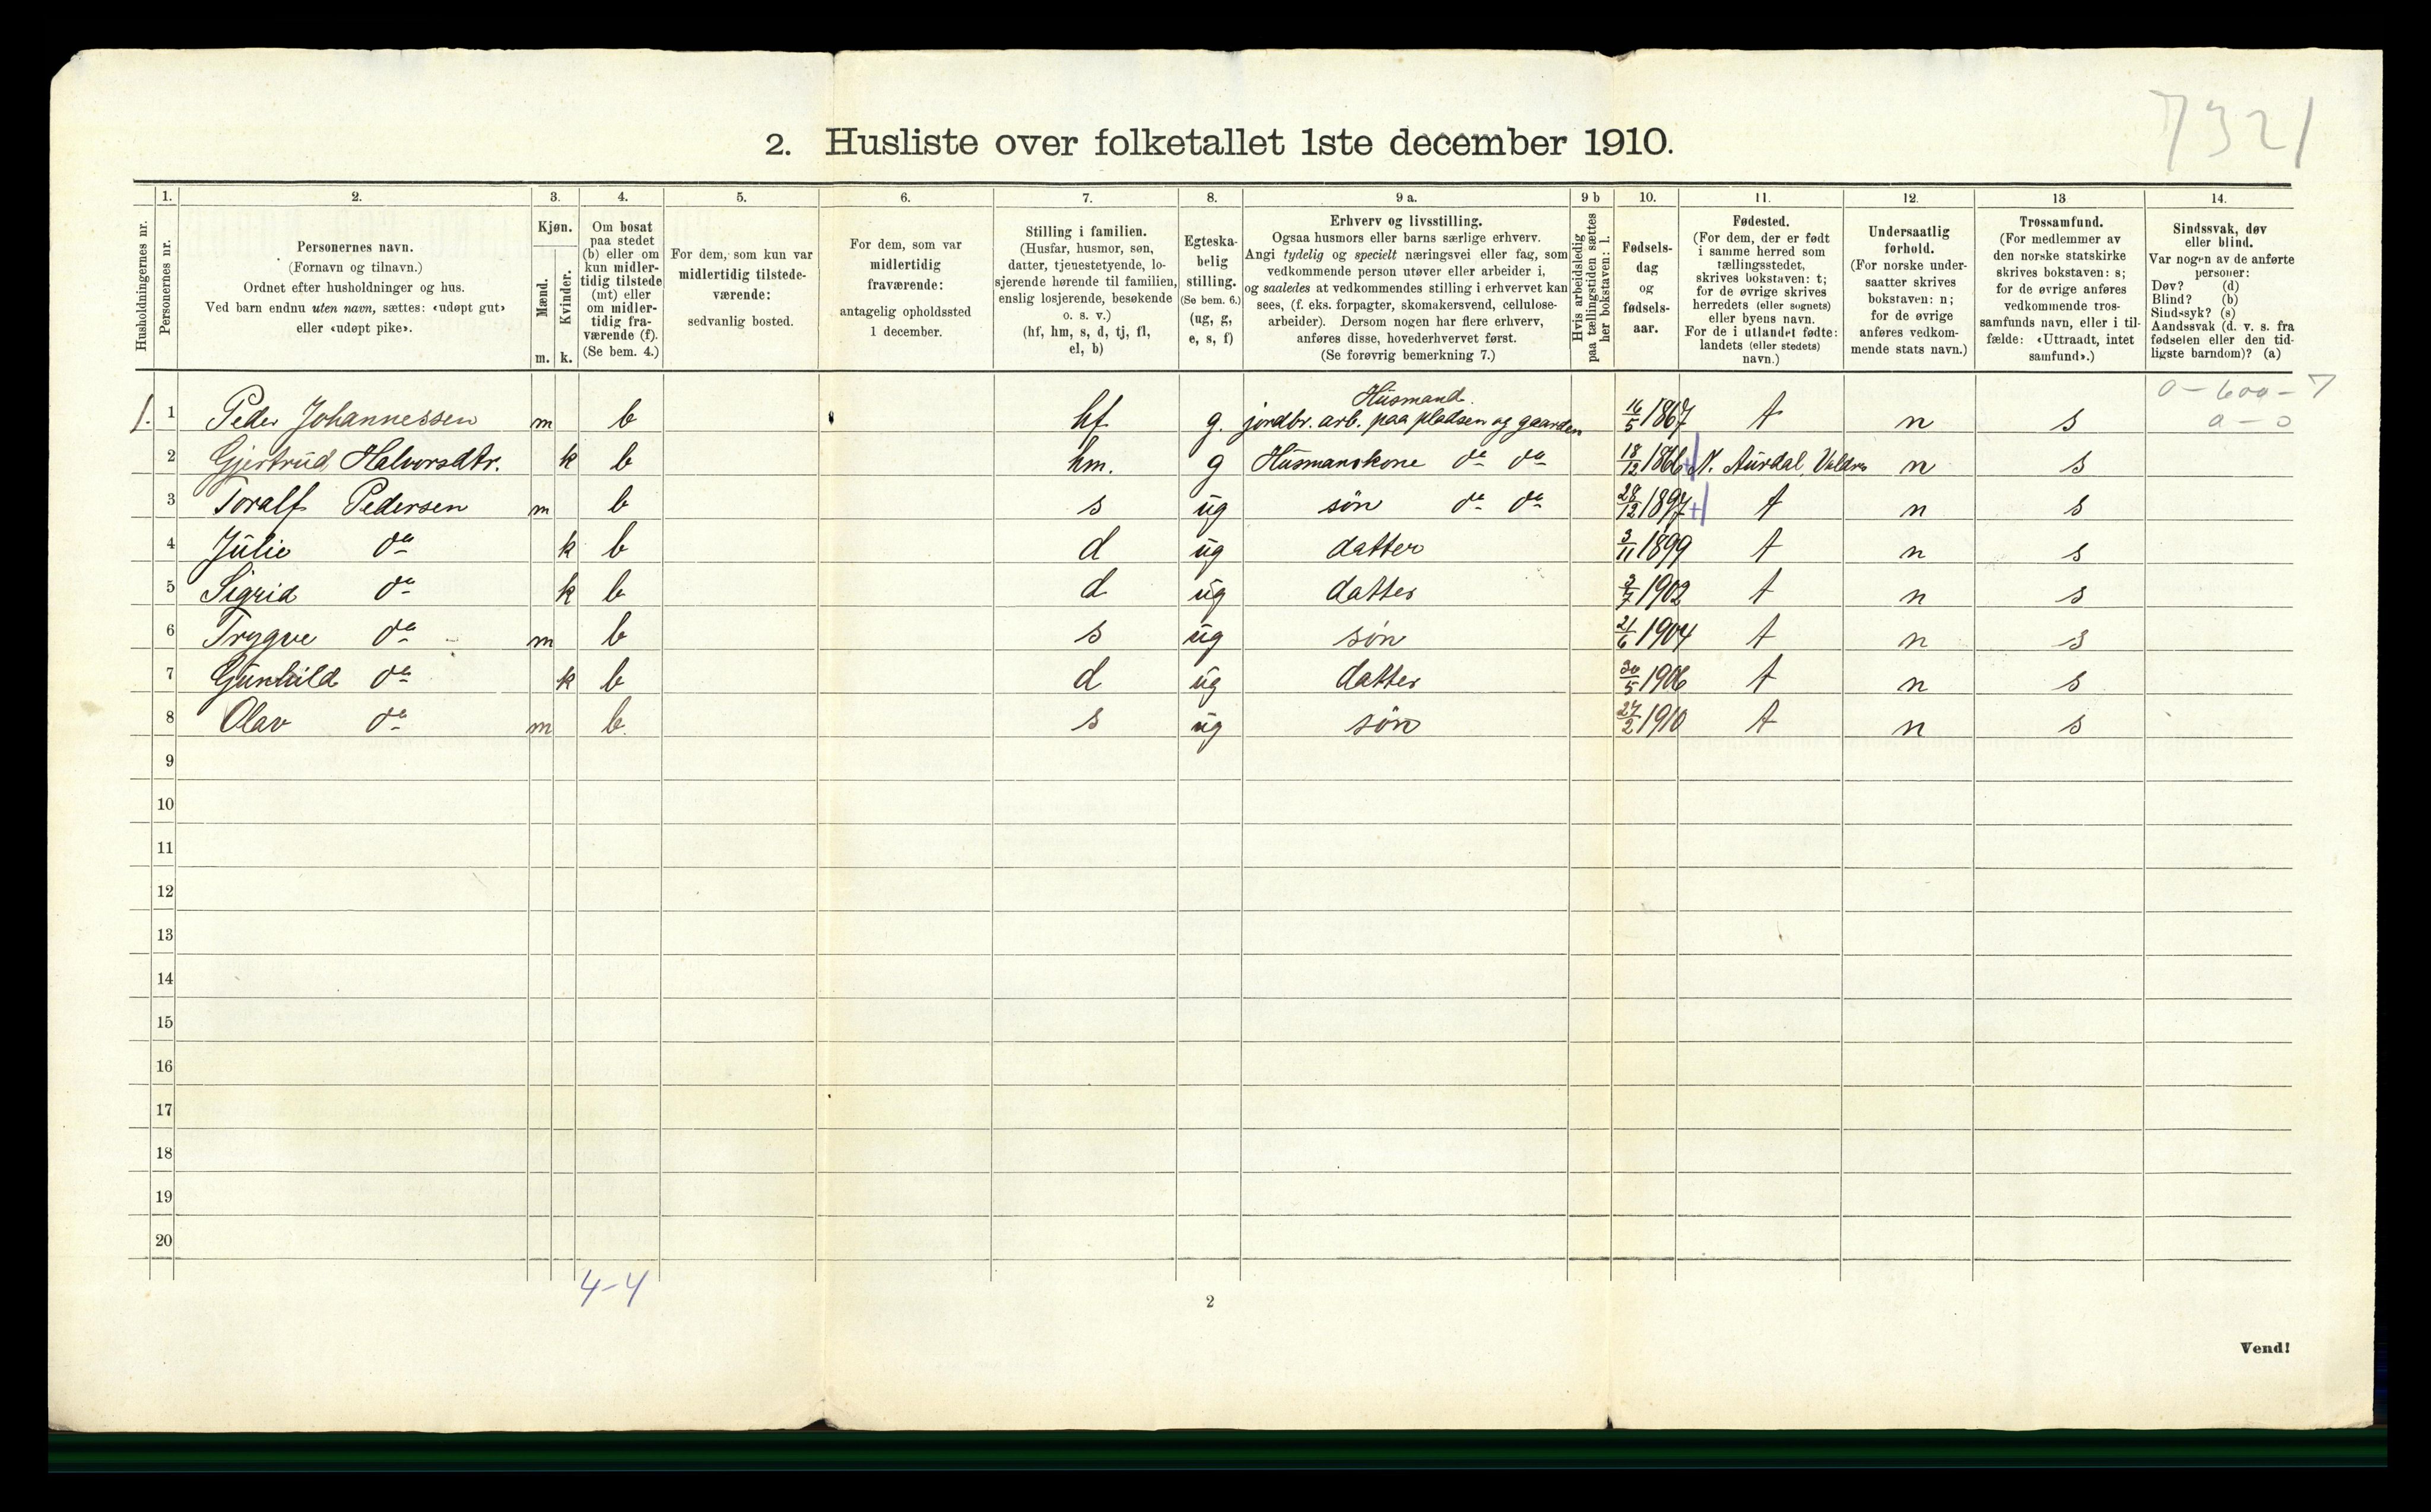 7321
2. Husliste over folketallet 1ste december 1910.
Husholdningernes nr.
1.
Personernes nr.
2.
Personernes navn.
(Fornavn og tilnavn.)
Ordnet efter husholdninger og hus.
Ved barn endnu uten navn, sættes: «udøpt gut»
eller «udøpt pike».
3.
Kjøn.
Mænd.
m.
Kvinder.
k.
4.
Om bosat
paa stedet
(b) eller om
kun midler-
tidig tilstede
(mt) eller
om midler-
tidig fra-
værende (f).
(Se bem. 4.)
5.
For dem, som kun var
midlertidig tilstede-
værende:
sedvanlig bosted.
6.
For dem, som var
midlertidig
fraværende:
antagelig opholdssted
1 december.
7.
Stilling i familien.
(Husfar, husmor, søn,
datter, tjenestetyende, lo-
sjerende hørende til familien,
enslig losjerende, besøkende
o. s. v.)
(hf, hm, s, d, tj, fl,
el, b)
8.
Egteska-
belig
stilling.
(Se bem. 6.)
(ug, g,
e, s, f)
9 a.
Erhverv og livsstilling.
Ogsaa husmors eller barns særlige erhverv.
Angi tydelig og specielt næringsvei eller fag, som
vedkommende person utøver eller arbeider i,
og saaledes at vedkommendes stilling i erhvervet kan
sees, (f. eks. forpagter, skomakersvend, cellulose-
arbeider). Dersom nogen har flere erhverv,
anføres disse, hovederhvervet først.
(Se forøvrig bemerkning 7.)
9 b
Hvis arbeidsledig
paa tællingstiden sættes
her bokstaven: l.
10.
Fødsels-
dag
og
fødsels-
aar.
11.
Fødested.
(For dem, der er født
i samme herred som
tællingsstedet,
skrives bokstaven: t;
for de øvrige skrives
herredets (eller sognets)
eller byens navn.
For de i utlandet fødte:
landets (eller stedets)
navn.)
12.
Undersaatlig
forhold.
(For norske under-
saatter skrives
bokstaven: n;
for de øvrige
anføres vedkom-
mende stats navn.)
13
Trossamfund.
(For medlemmer av
den norske statskirke
skrives bokstaven: s;
for de øvrige anføres
vedkommende tros-
samfunds navn, eller i til-
fælde: «Uttraadt, intet
samfund».)
14.
Sindssvak, døv
eller blind.
Var nogen av de anførte
personer:
Døv? (d)
Blind? (b)
Sindssyk? (s)
Aandssvak (d. v. s. fra
fødselen eller den tid-
ligste barndom)? (a)
0-600-7
0-0
Husmand.
1. 1 Peder Johannessen m b hf g. jordbr. arb. paa pladsen og gaarden 16/5 1867 t n s
2 Gjertrud Halvorsdtr. k b hm. g Husmanskone do do 18/12 1866 N. Aurdal Valdrs n s
3 Toralf Pedersen m b s ug søn do do 28/12 1897 t n s
4 Julie do k b d ug datter 3/11 1899 t n s
5 Sigrid do k b d ug datter 3/7 1902 t n s
6 Trygve do m b s ug søn 21/6 1904 t n s
7 Gunhild do k b d ug datter 30/5 1906 t n s
8 Olav do m b. s ug søn 24/2 1910 t n s
9
10
11
12
13
14
15
16
17
18
19
20
4-4
2
Vend!